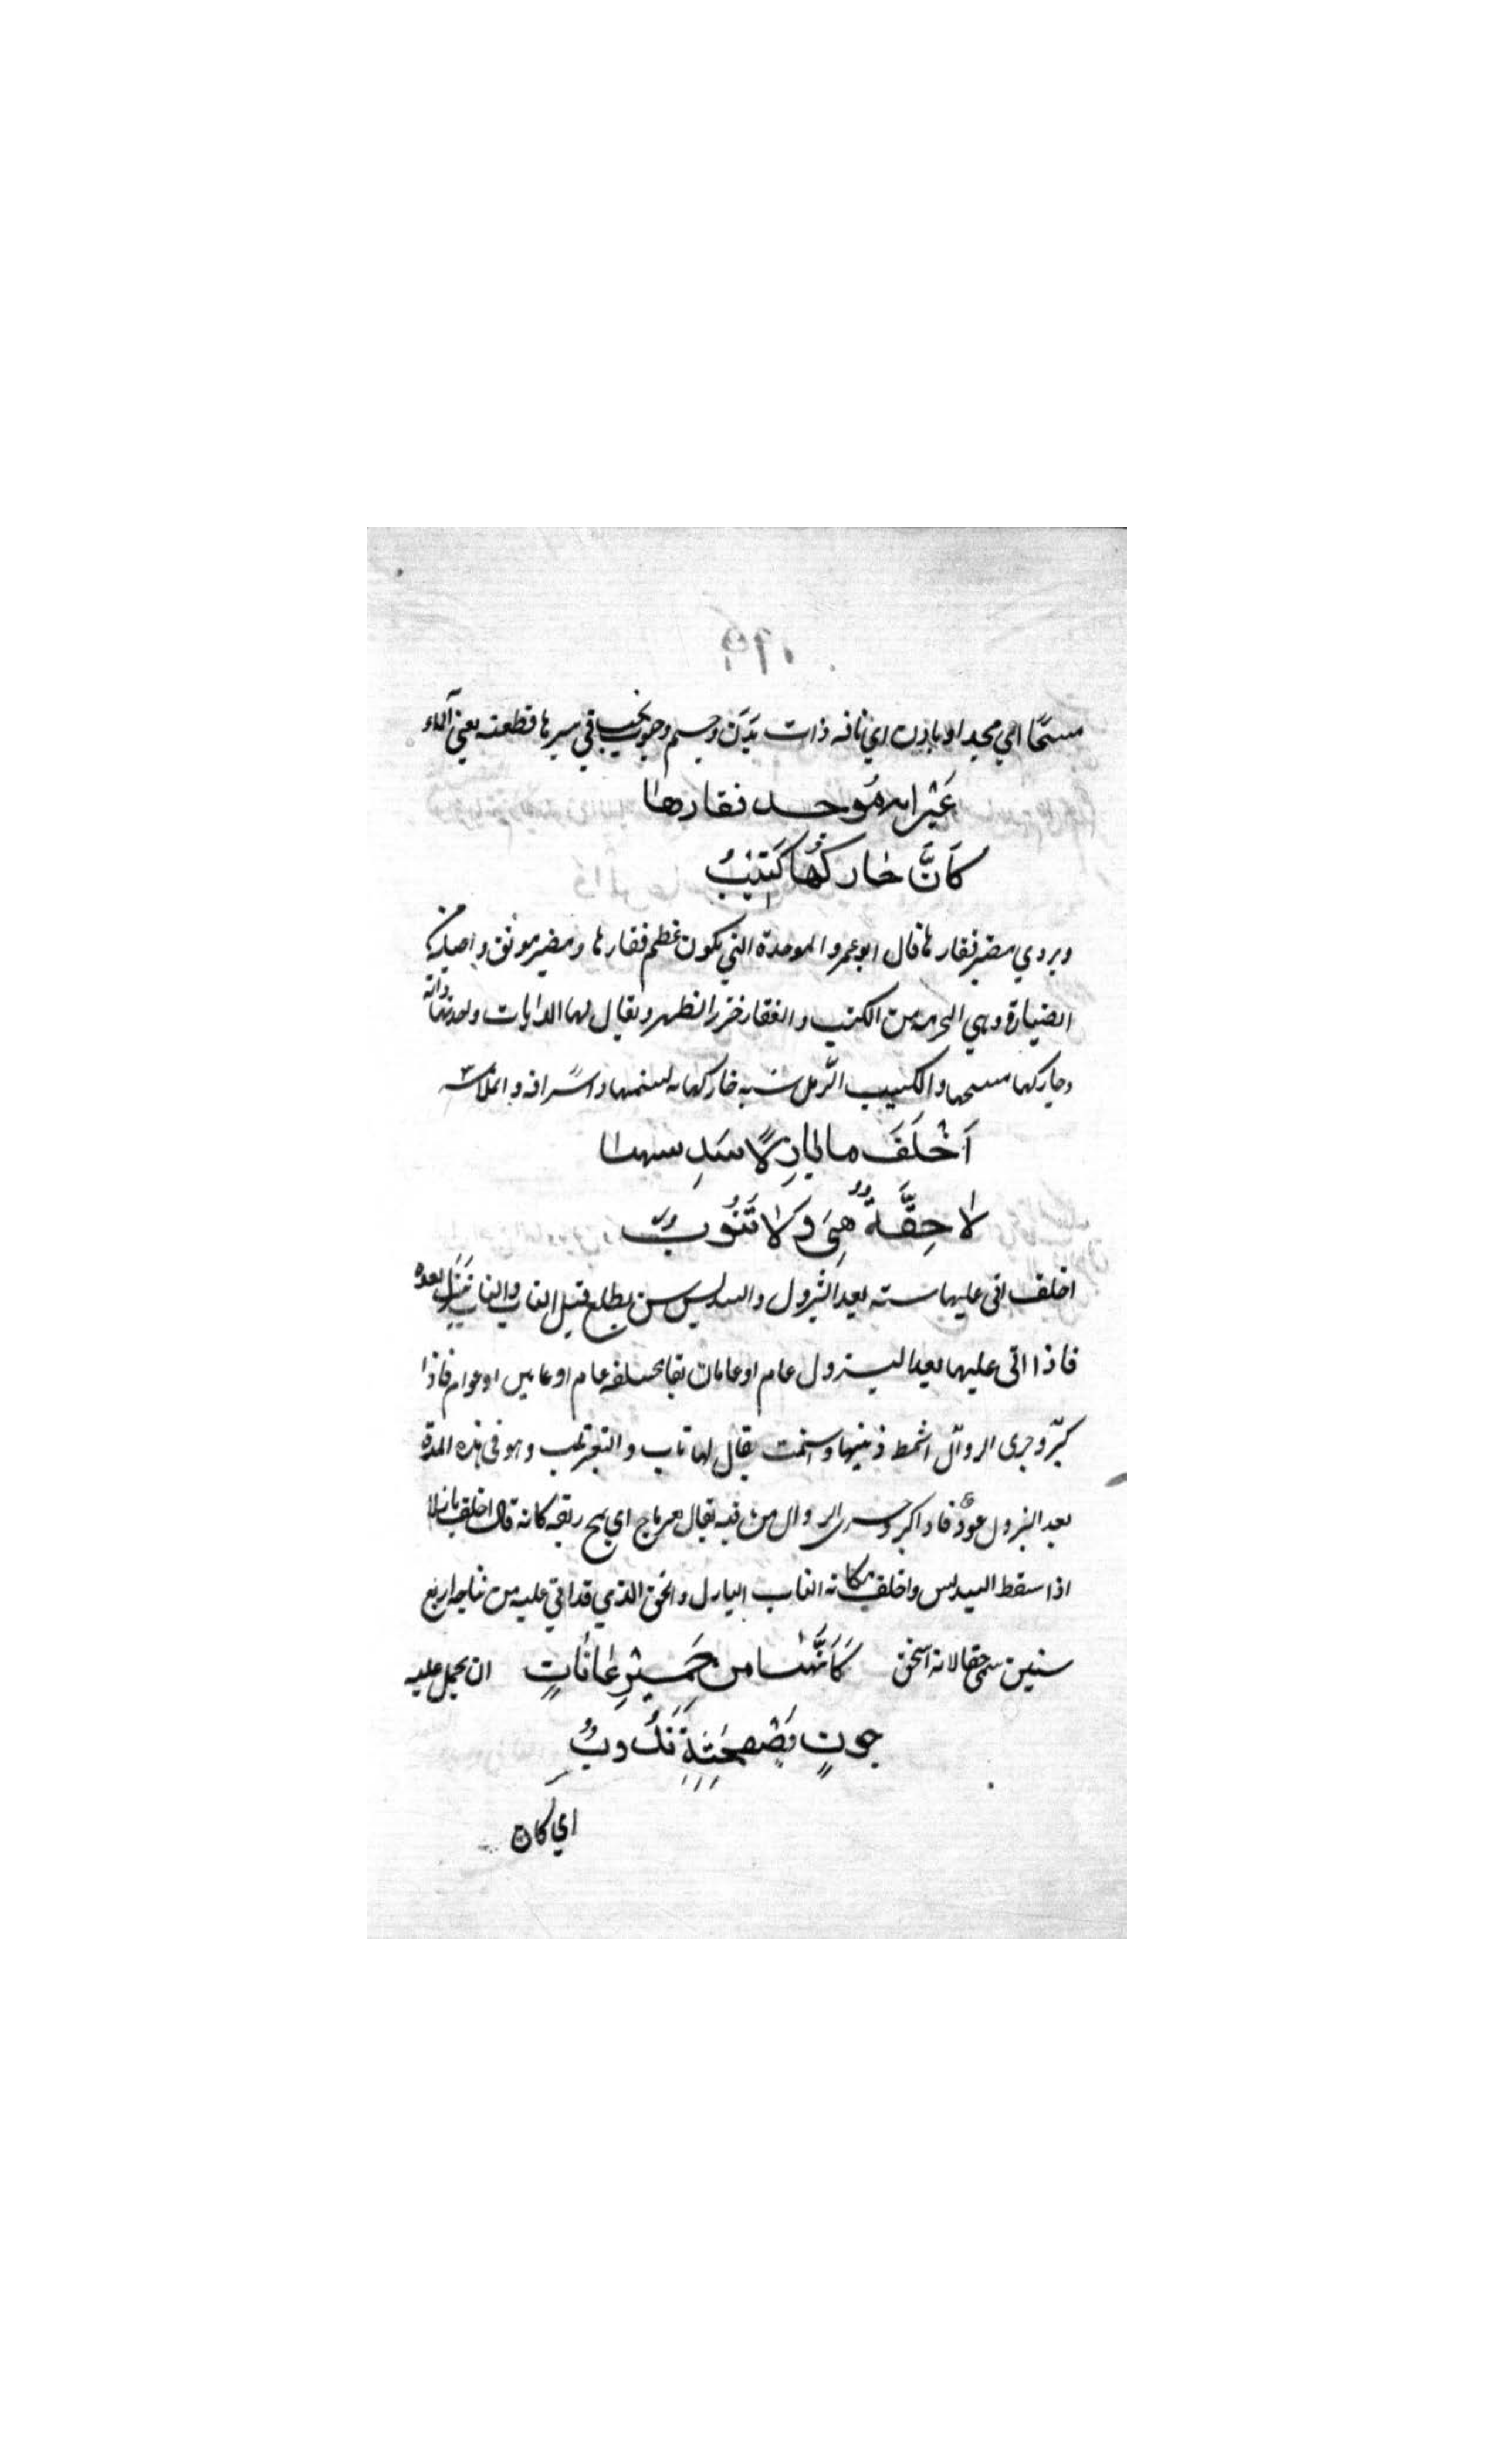 مسحا اي مجيدا و بادن اي ناقه ذات بدن وجسم وجوب في سيرها قطعته يعني الماء
عيرانه موحد فقارها
كَأَنَّ حاركها كَثِيبُ
ويروي مضبر فقارها قال ابو عمرو الموحدة التي يكون عظم فقارها ومضبر موثق واصله من
الضبارة وهي الحزمه من الكتب والفقار خرز الظهر ويقال لها الدايات واحدتها داية
وحاركها منسجها والكثيب الرمل شبه حاركها به لسنمها واشرافه و املاسه
أَخْلَفَ ما بازِلًا سَدِيسها
لا حِقَّةٌ هِيَ ولا نَيُوبُ
اخلف اتى عليها سنة بعد البزول والسديس سن يطلع قبل الناب والناب بعده
فاذا اتى عليها بعد البزول عام او عامان يقال مخلف عام او عامين او عوام فاذا
كبر وجرى الروال اشمط ذنبها يقال لها ناب و وهو في هذه المدة
بعد البزول عود فاذا كبر الروال من فيه يقال اي يمج ريقه كانه قال اخلف بازلا
اذا سقط السديس واخلف مكانه الناب البازل والحق الذي قد اتى عليه من نتاجه اربع
سنين سمي حقا لانه استحق كَأَنَّها من حَمِيرِ عانَاتٍ ان يحمل عليه
جونٍ بصفحته نُدُوبُ
اي كان